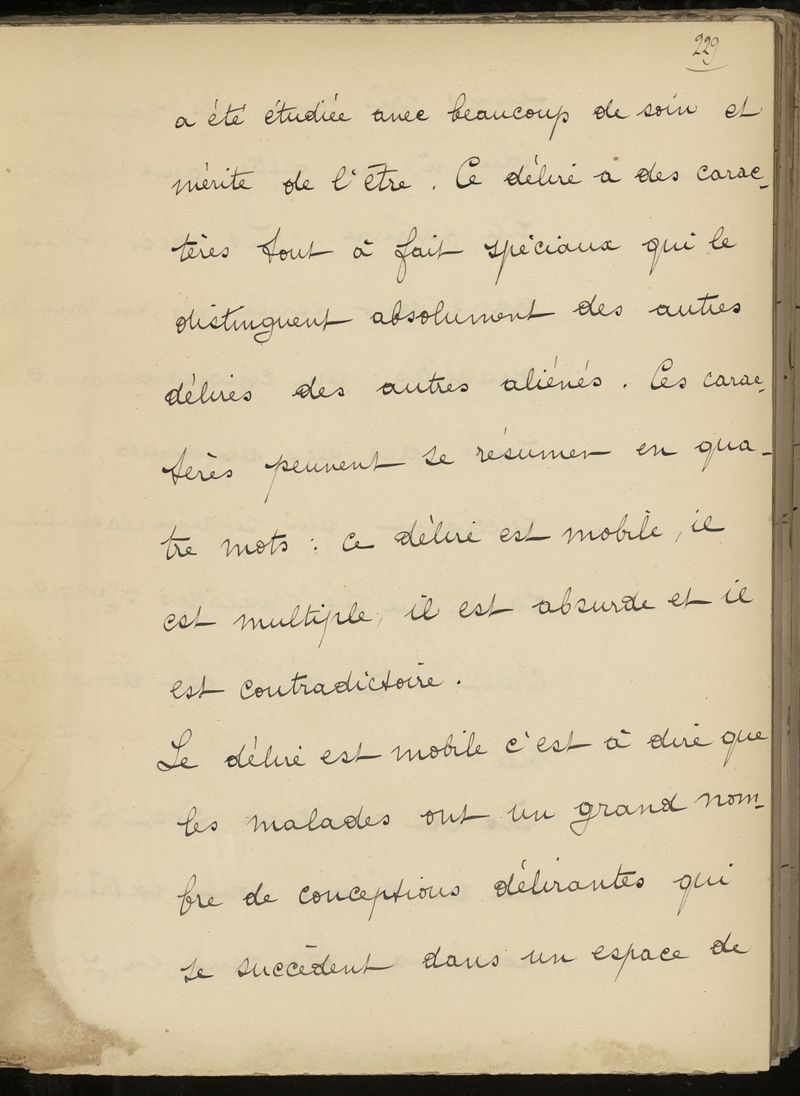 229
a été étudiée avec beaucoup de soin et
mérite de l'être. Ce délire a des carac-
tères tout à fait spéciaux qui le
distinguent absolument des autres
délires des autres aliénés. Ces carac-
tères peuvent se résumer en qua-
tre mots : ce délire est mobile, il
est multiple, il est absurde et il
est contradictoire.
Le délire est mobile c'est à dire que
les malades ont un grand nom-
bre de conceptions délirantes qui
se succèdent dans un espace de